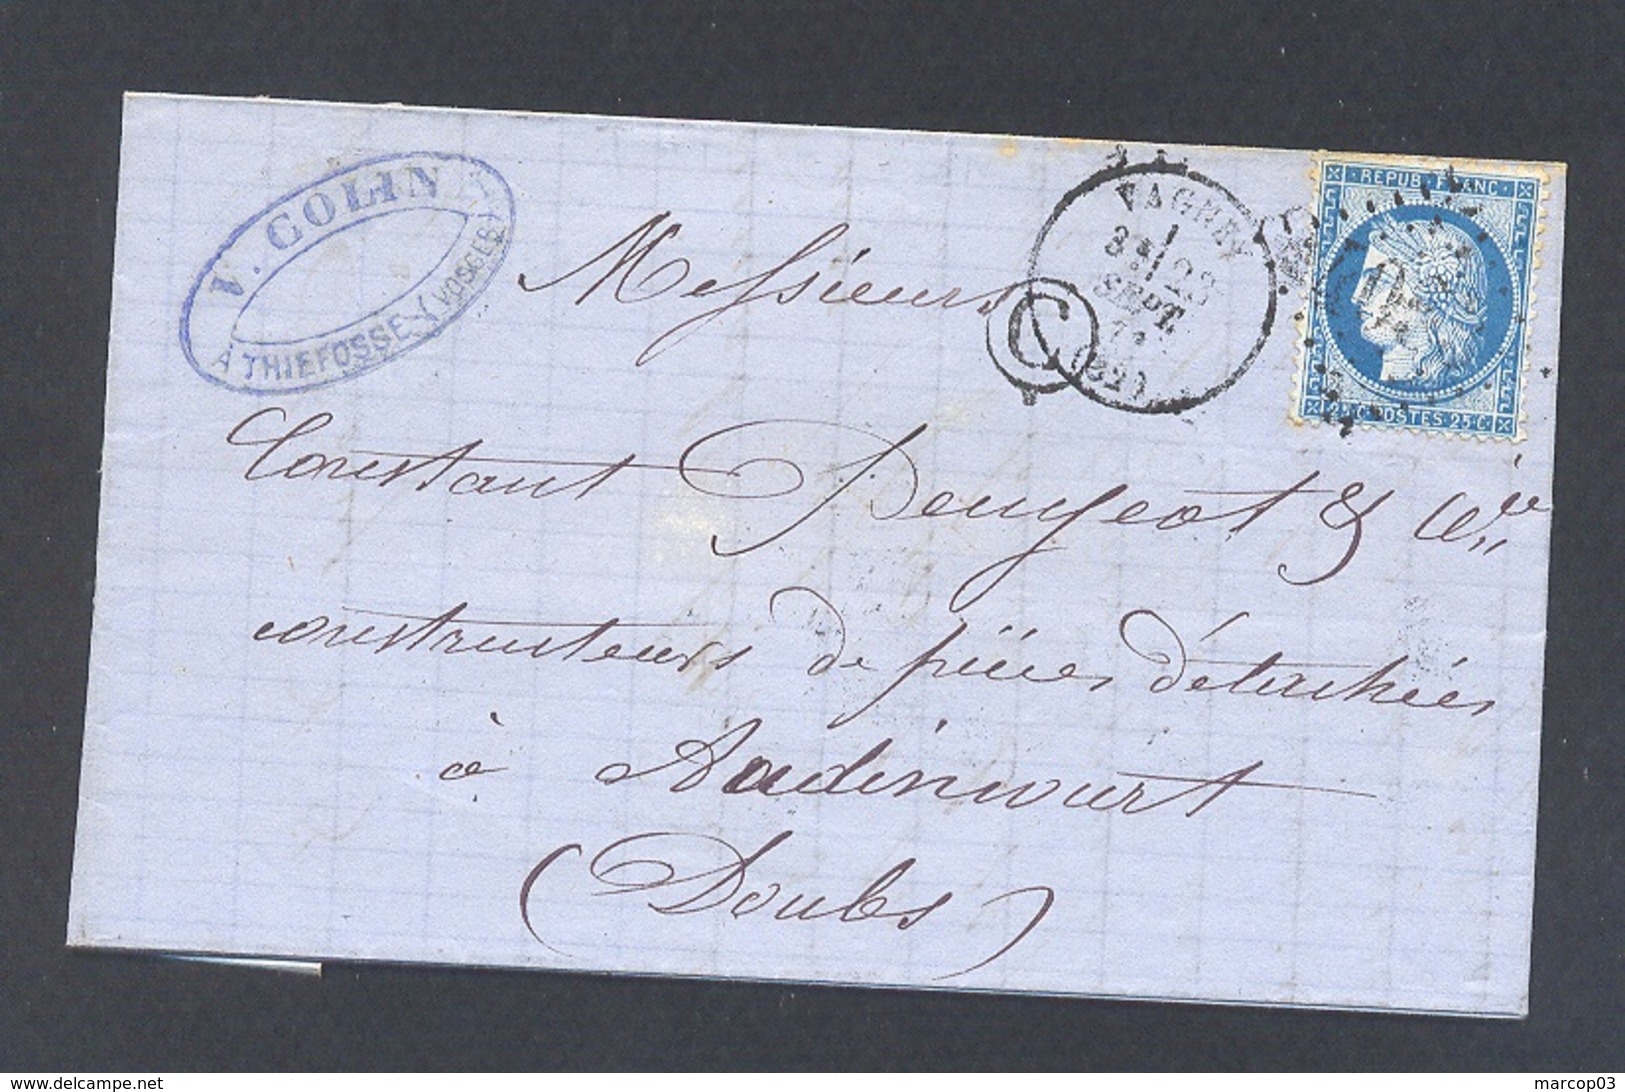 V. COLIN
A THIEFOSSE (VOSGES)
Messieurs
VAGNEY
23
SEPT.
(82)
C
REPUB. FRANC.
25 C. POSTES 25 C.
Constant Peugeot & Cie
constructeurs de pièces détachées
à Audincourt
(Doubs)
www.delcampe.net
marcop03